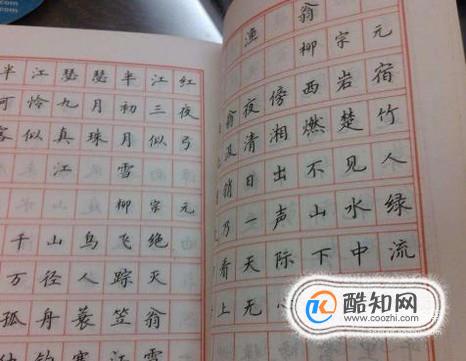 半江瑟瑟半江红
可怜九月初三夜
似真珠月似弓
江雪
柳宗元
千山鸟飞绝
万径人踪灭
孤舟蓑笠翁
钓寒江雪
渔翁
柳宗元
翁夜傍西岩宿
汲清湘燃楚竹
销日出不见人
乃一声山水绿
看天际下中流
上无心
酷知网
www.coozhi.com